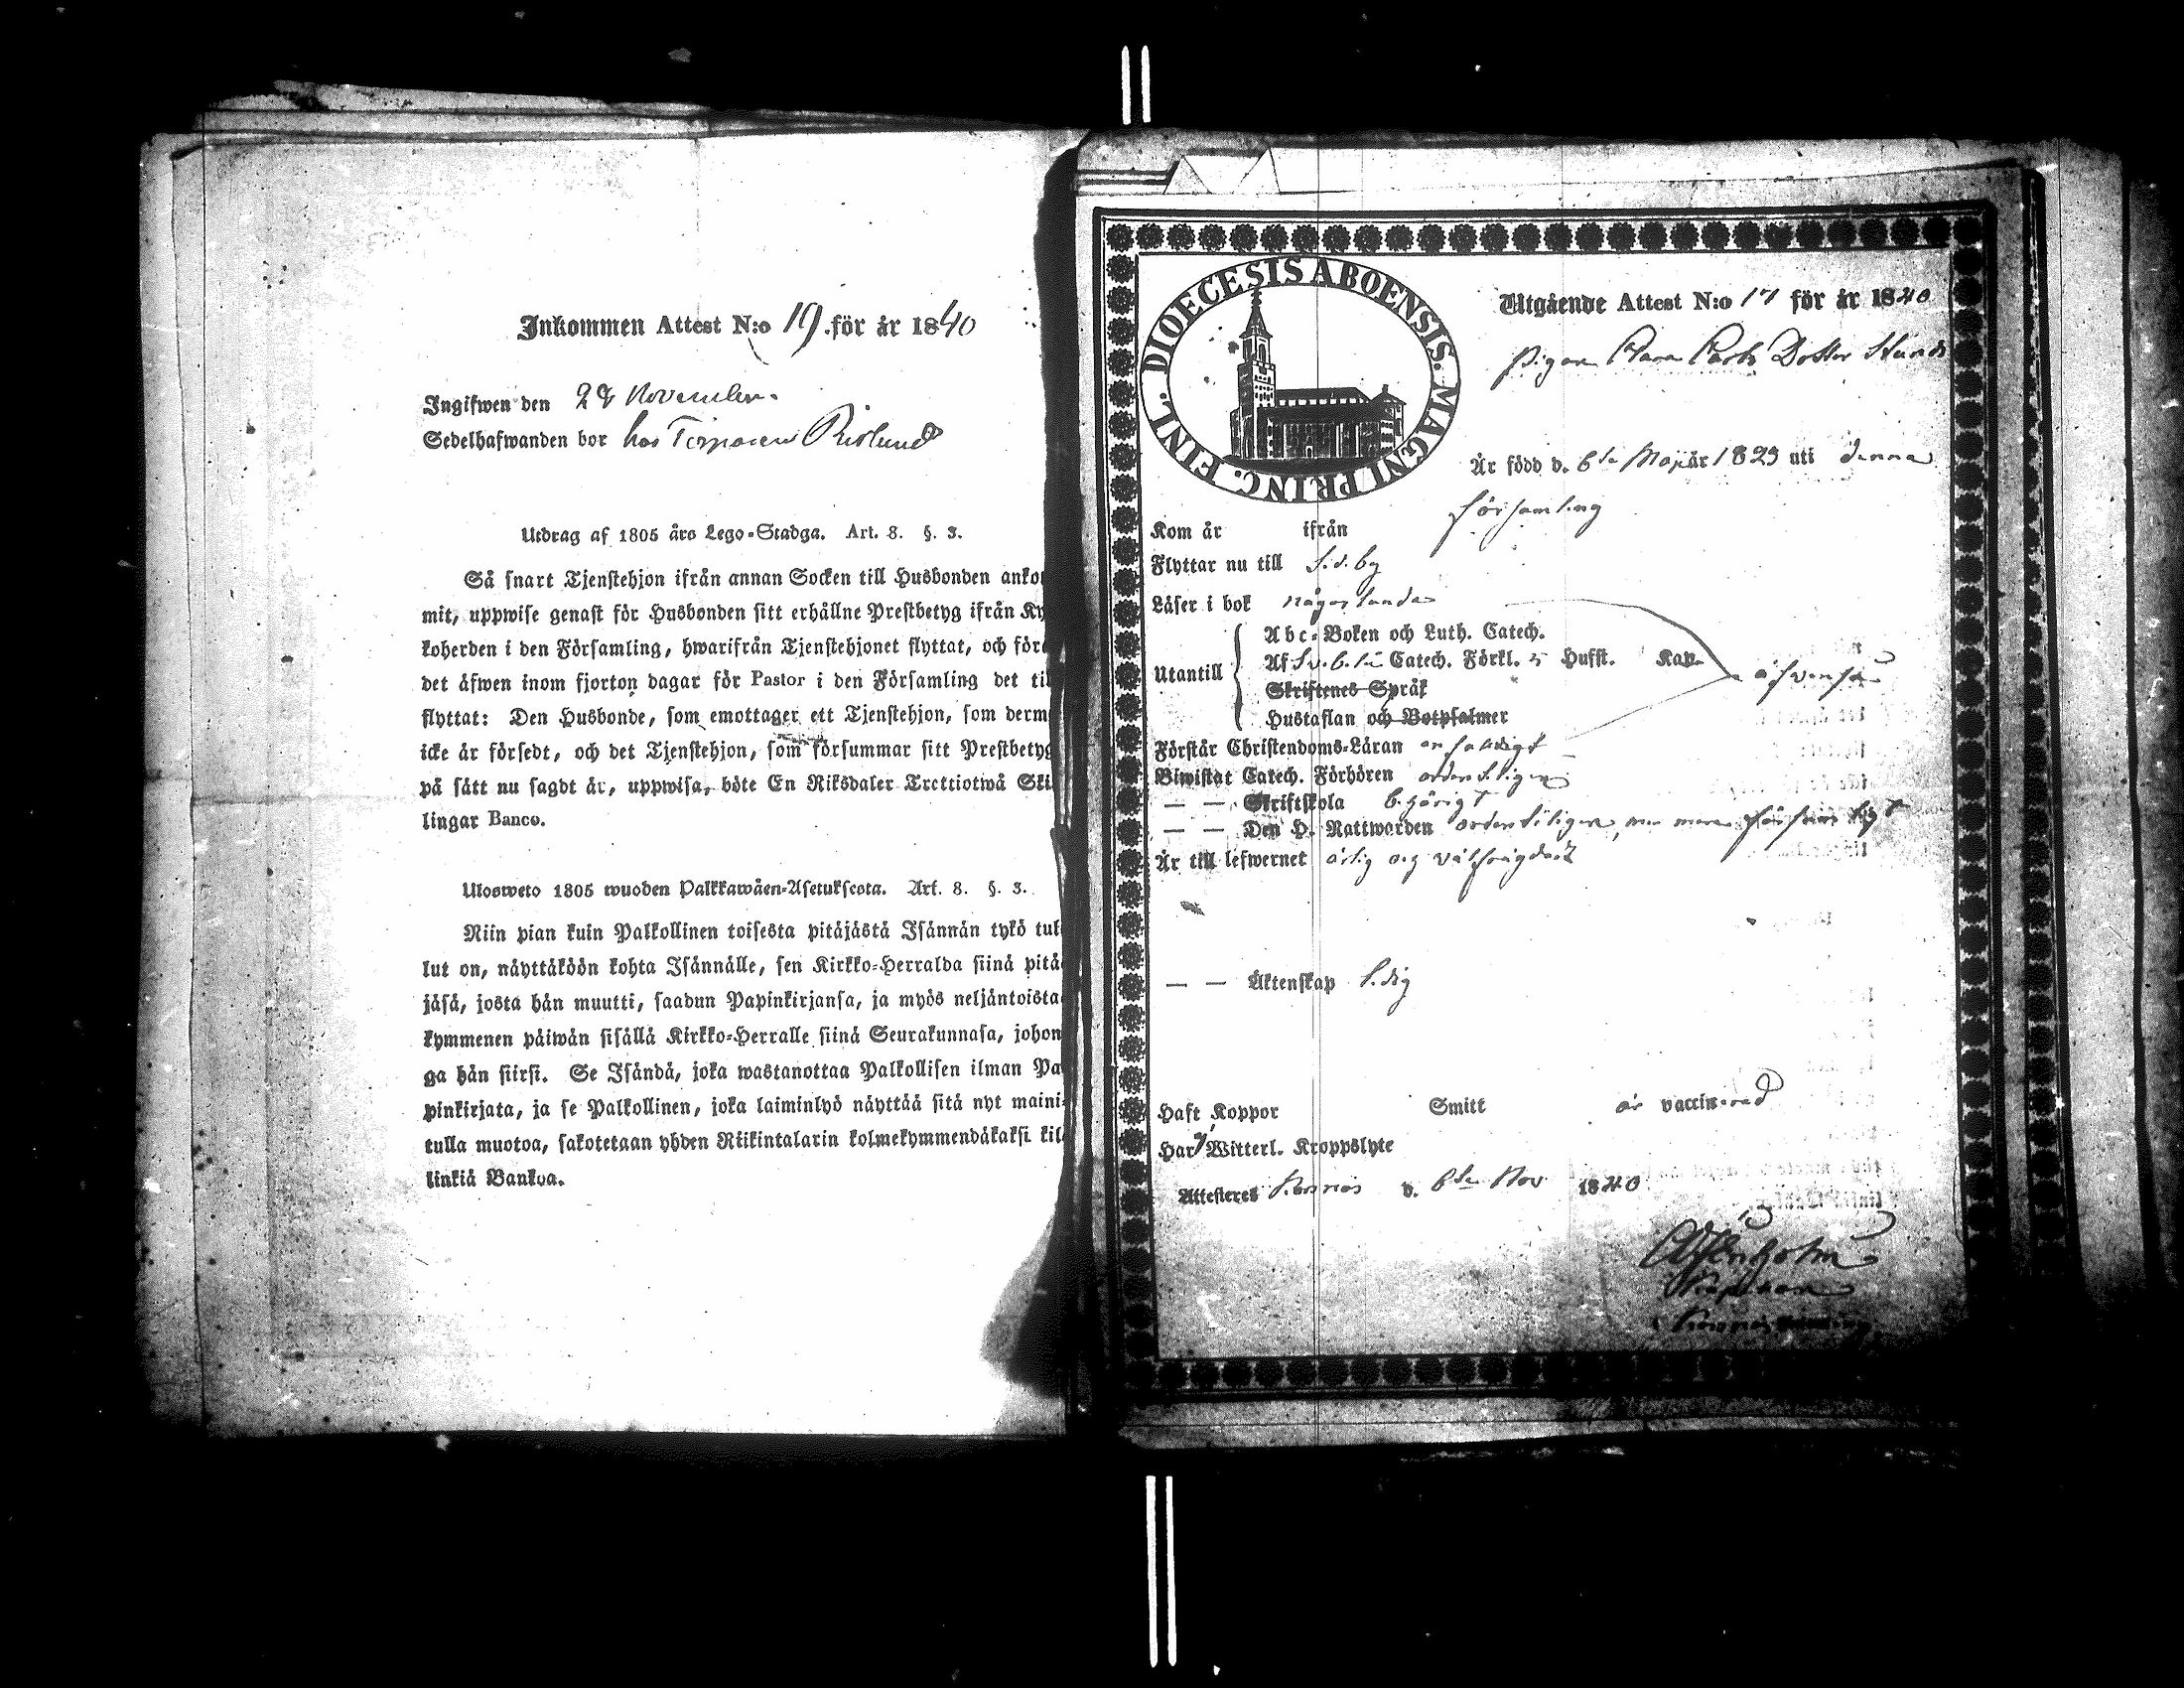 Inkommen Attest N:o 19. för år 1840
Ingifwen den 28 November.
Sedelhafwanden bor hos Torparen
Utdrag af 1805 års Lego-Stadga. Art. 8. §. 3.
Så snart Tjenstehjon ifrån annan Socken till Husbonden anko
mit, uppwise genast för Husbonden sitt erhållne Prestbetyg ifrån Ky
koherden i den Församling, hwarifrån Tjenstehjonet flyttat, och före
det äfwen inom fjorton dagar för Pastor i den Församling det til
flyttat: Den Husbonde, som emottager ett Tjenstehjon, som derm
icke är försedt, och det Tjenstehjon, som försummar sitt Prestbetyg
på sätt nu sagdt är, uppwisa, böte En Riksdaler Trettiotwå Skil
lingar Banco.
Ulosweto 1805 wuoden Palkkawäen-Asetuksesta. Art. 8. §. 3.
Niin pian kuin Palkollinen toisesta pitäjästä Isännän tykö tul-
lut on, näyttäköön kohta Isännälle, sen Kirkko-Herralda siinä pitä-
jäsä, josta hän muutti, saadun Papinkirjansa, ja myös neljäntoista-
kymmenen päiwän sisällä Kirkko-Herralle siinä Seurakunnasa, johon-
ga hän siirsi. Se Isändä, joka wastanottaa Palkollisen ilman Pa-
pinkirjata, ja se Palkollinen, joka laiminlyö näyttää sitä nyt maini-
tulla muotoa, sakotetaan yhden Riikintalarin kolmekymmendäkaksi kil-
linkiä Bankoa.
DIOECESIS ABOENSIS. MAGNI PRINC. FINL.
Utgående Attest N:o 17 för år 1840
Pigan Clara Carls Dotter
Är född d. 6te Maji år 1823 uti denna
församling
Kom år ifrån
Flyttar nu till S.d.by
Läser i bok någorlunda
Utantill
Abc-Boken och Luth. Catech.
Af Catech. Förkl. Husst. Kap. äfvenså
Skriftenes Språk
Hustaflan och Botpsalmer
Förstår Christendoms-Läran enfaldigt
Biwistat Catech. Förhören ordenteligen
— — Skriftskola behörigt
— — Den H. Nattwarden ordenteligen
Är till lefwernet ärlig och välfrägdad
— — Äktenskap ledig
Haft Koppor Smitt är vaccinerad
Har ej Witterl. Kroppslyte
Attesteres d. 6te Nov 1840